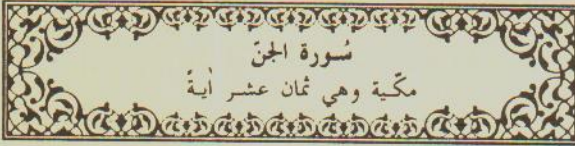 سُورة الجنّ
مكّية وهي ثمان عشر اٰيةً